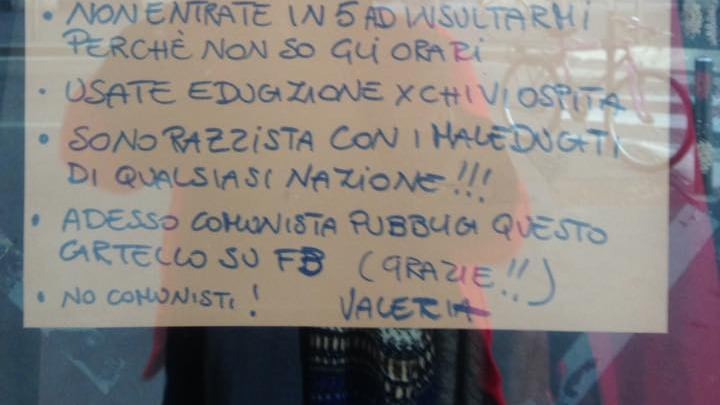 • NON ENTRATE IN 5 AD INSULTARMI
PERCHÈ NON SO GLI ORARI
• USATE EDUCAZIONE X CHI VI OSPITA
• SONO RAZZISTA CON I MALEDUCATI
DI QUALSIASI NAZIONE!!!
• ADESSO COMUNISTA PUBBLICA QUESTO
CARTELLO SU FB (GRAZIE!!)
• NO COMUNISTI! VALERIA